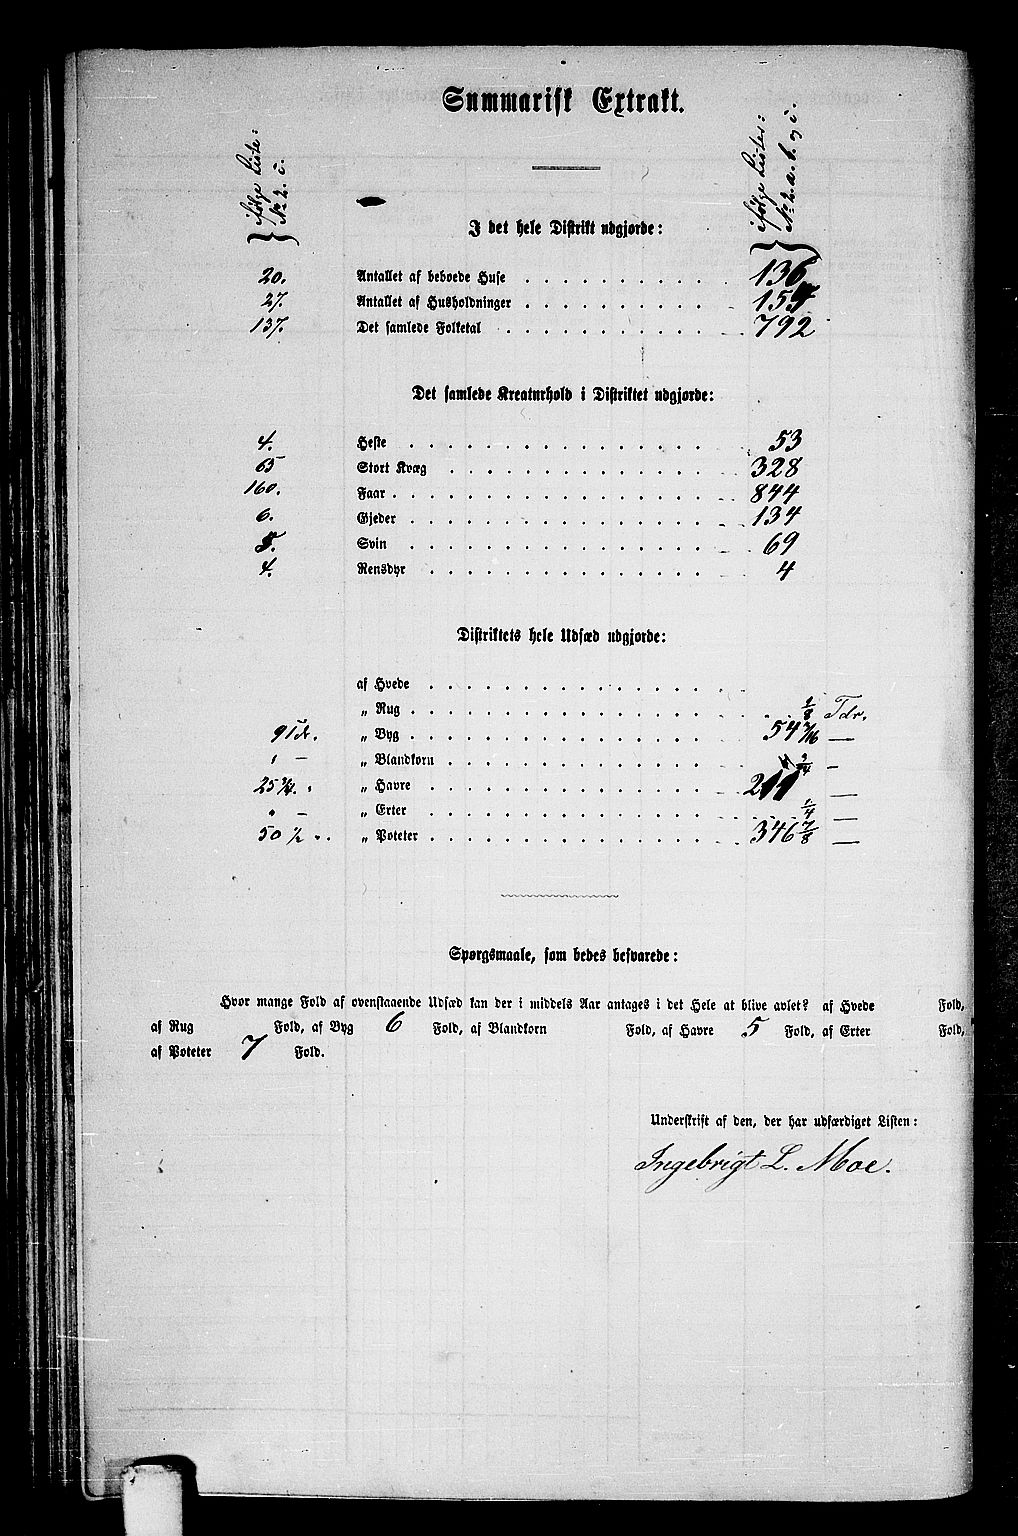 Summarisk Extrakt.
ifølge Liste: No 2. c.
ifølge Lister: No 2. a. b. og c.
I det hele Distrikt udgjorde:
20. Antallet af beboede Huse 136
27. Antallet af Husholdninger 157
137. Det samlede Folketal 792
Det samlede Kreaturhold i Distriktet udgjorde:
4. Heste 53
65 Stort Kvæg 328
160. Faar 844
6. Gjeder 134
5. Svin 69
4. Rensdyr 4
Distriktets hele Udsæd udgjorde:
af Hvede
„ Rug 1/8 Tdr.
„ Byg 54 7/16 —
„ Blandkorn 3/4 —
„ Havre 211 —
„ Erter 1/4 —
50 1/2 „ Poteter 346 7/8 —
Spørgsmaale, som bedes besvarede:
Hvor mange Fold af ovenstaaende Udsæd kan der i middels Aar antages i det Hele at blive avlet? af Hvede Fold,
af Rug Fold, af Byg 6 Fold, af Blandkorn Fold, af Havre 5 Fold, af Erter Fold,
af Poteter 7 Fold.
Underskrift af den, der har udfærdiget Listen:
Ingebrigt L. Moe.